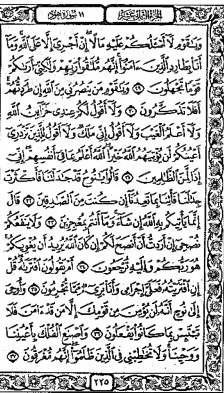 الجزء الثاني عشر ١١ سورة هود
وَيَٰقَوْمِ لَآ أَسْـَٔلُكُمْ عَلَيْهِ مَالًا إِنْ أَجْرِىَ إِلَّا عَلَى ٱللَّهِ وَمَآ
أَنَا۠ بِطَارِدِ ٱلَّذِينَ ءَامَنُوٓا۟ إِنَّهُم مُّلَٰقُوا۟ رَبِّهِمْ وَلَٰكِنِّىٓ أَرَىٰكُمْ
قَوْمًا تَجْهَلُونَ ٢٩ وَيَٰقَوْمِ مَن يَنصُرُنِى مِنَ ٱللَّهِ إِن طَرَدتُّهُمْ
أَفَلَا تَذَكَّرُونَ ٣٠ وَلَآ أَقُولُ لَكُمْ عِندِى خَزَآئِنُ ٱللَّهِ
وَلَآ أَعْلَمُ ٱلْغَيْبَ وَلَآ أَقُولُ إِنِّى مَلَكٌ وَلَآ أَقُولُ لِلَّذِينَ تَزْدَرِىٓ
أَعْيُنُكُمْ لَن يُؤْتِيَهُمُ ٱللَّهُ خَيْرًا ٱللَّهُ أَعْلَمُ بِمَا فِىٓ أَنفُسِهِمْ إِنِّىٓ
إِذًا لَّمِنَ ٱلظَّٰلِمِينَ ٣١ قَالُوا۟ يَٰنُوحُ قَدْ جَٰدَلْتَنَا فَأَكْثَرْتَ
جِدَٰلَنَا فَأْتِنَا بِمَا تَعِدُنَآ إِن كُنتَ مِنَ ٱلصَّٰدِقِينَ ٣٢ قَالَ
إِنَّمَا يَأْتِيكُم بِهِ ٱللَّهُ إِن شَآءَ وَمَآ أَنتُم بِمُعْجِزِينَ ٣٣ وَلَا يَنفَعُكُمْ
نُصْحِىٓ إِنْ أَرَدتُّ أَنْ أَنصَحَ لَكُمْ إِن كَانَ ٱللَّهُ يُرِيدُ أَن يُغْوِيَكُمْ
هُوَ رَبُّكُمْ وَإِلَيْهِ تُرْجَعُونَ ٣٤ أَمْ يَقُولُونَ ٱفْتَرَىٰهُ قُلْ
إِنِ ٱفْتَرَيْتُهُۥ فَعَلَىَّ إِجْرَامِى وَأَنَا۠ بَرِىٓءٌ مِّمَّا تُجْرِمُونَ ٣٥ وَأُوحِىَ
إِلَىٰ نُوحٍ أَنَّهُۥ لَن يُؤْمِنَ مِن قَوْمِكَ إِلَّا مَن قَدْ ءَامَنَ فَلَا
تَبْتَئِسْ بِمَا كَانُوا۟ يَفْعَلُونَ ٣٦ وَٱصْنَعِ ٱلْفُلْكَ بِأَعْيُنِنَا
وَوَحْيِنَا وَلَا تُخَٰطِبْنِى فِى ٱلَّذِينَ ظَلَمُوٓا۟ إِنَّهُم مُّغْرَقُونَ ٣٧
٢٢٥